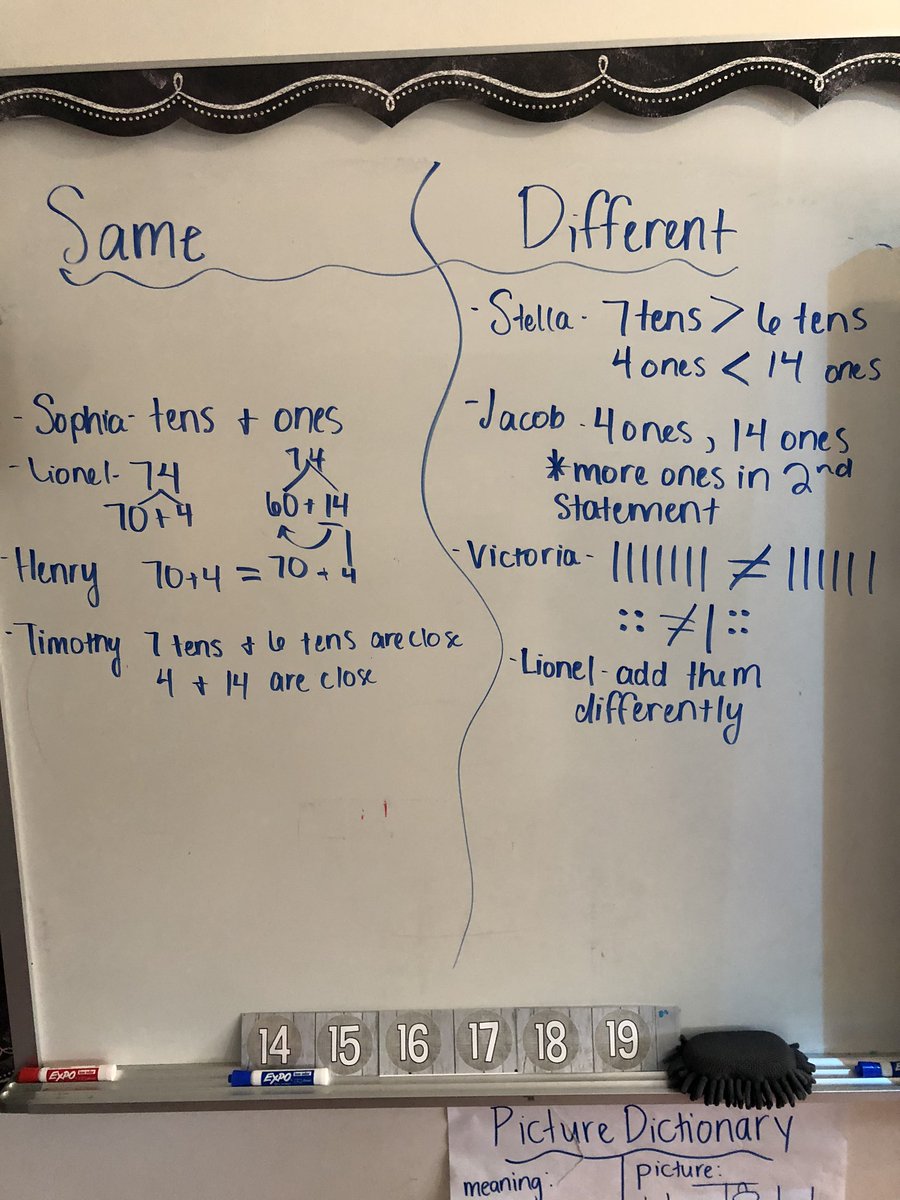 Same
- Sophia - tens + ones
- Lionel - 74 74
70+4 60+14
- Henry 70+4 = 70+4
- Timothy 7 tens + 6 tens are close
4 + 14 are close
Different
- Stella - 7 tens > 6 tens
4 ones < 14 ones
- Jacob - 4 ones, 14 ones
*more ones in 2nd
statement
- Victoria - ||||||| ≠ ||||||
:: ≠ | ::
- Lionel - add them
differently
14 15 16 17 18 19
EXPO
EXPO
Picture Dictionary
meaning: picture: